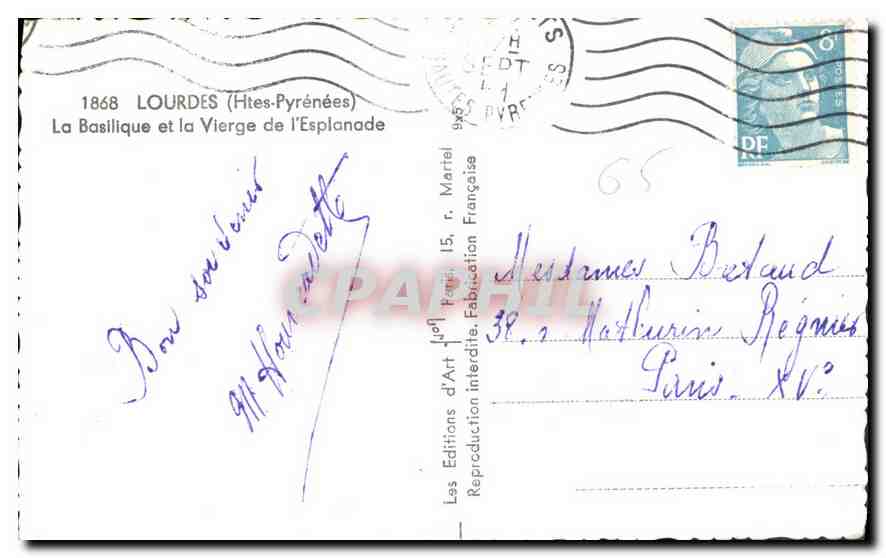 1868 LOURDES (Htes-Pyrénées)
La Basilique et la Vierge de l'Esplanade
Bon souvenir
SEPT
PYRENEES
8F
POSTES
RF
65
9x5
Les Editions d'Art Yvon Paris, 15, r. Martel
Reproduction interdite. Fabrication Française
Mesdames
38. r Mathurin Régnier
Paris. XVe
CPAPHIL